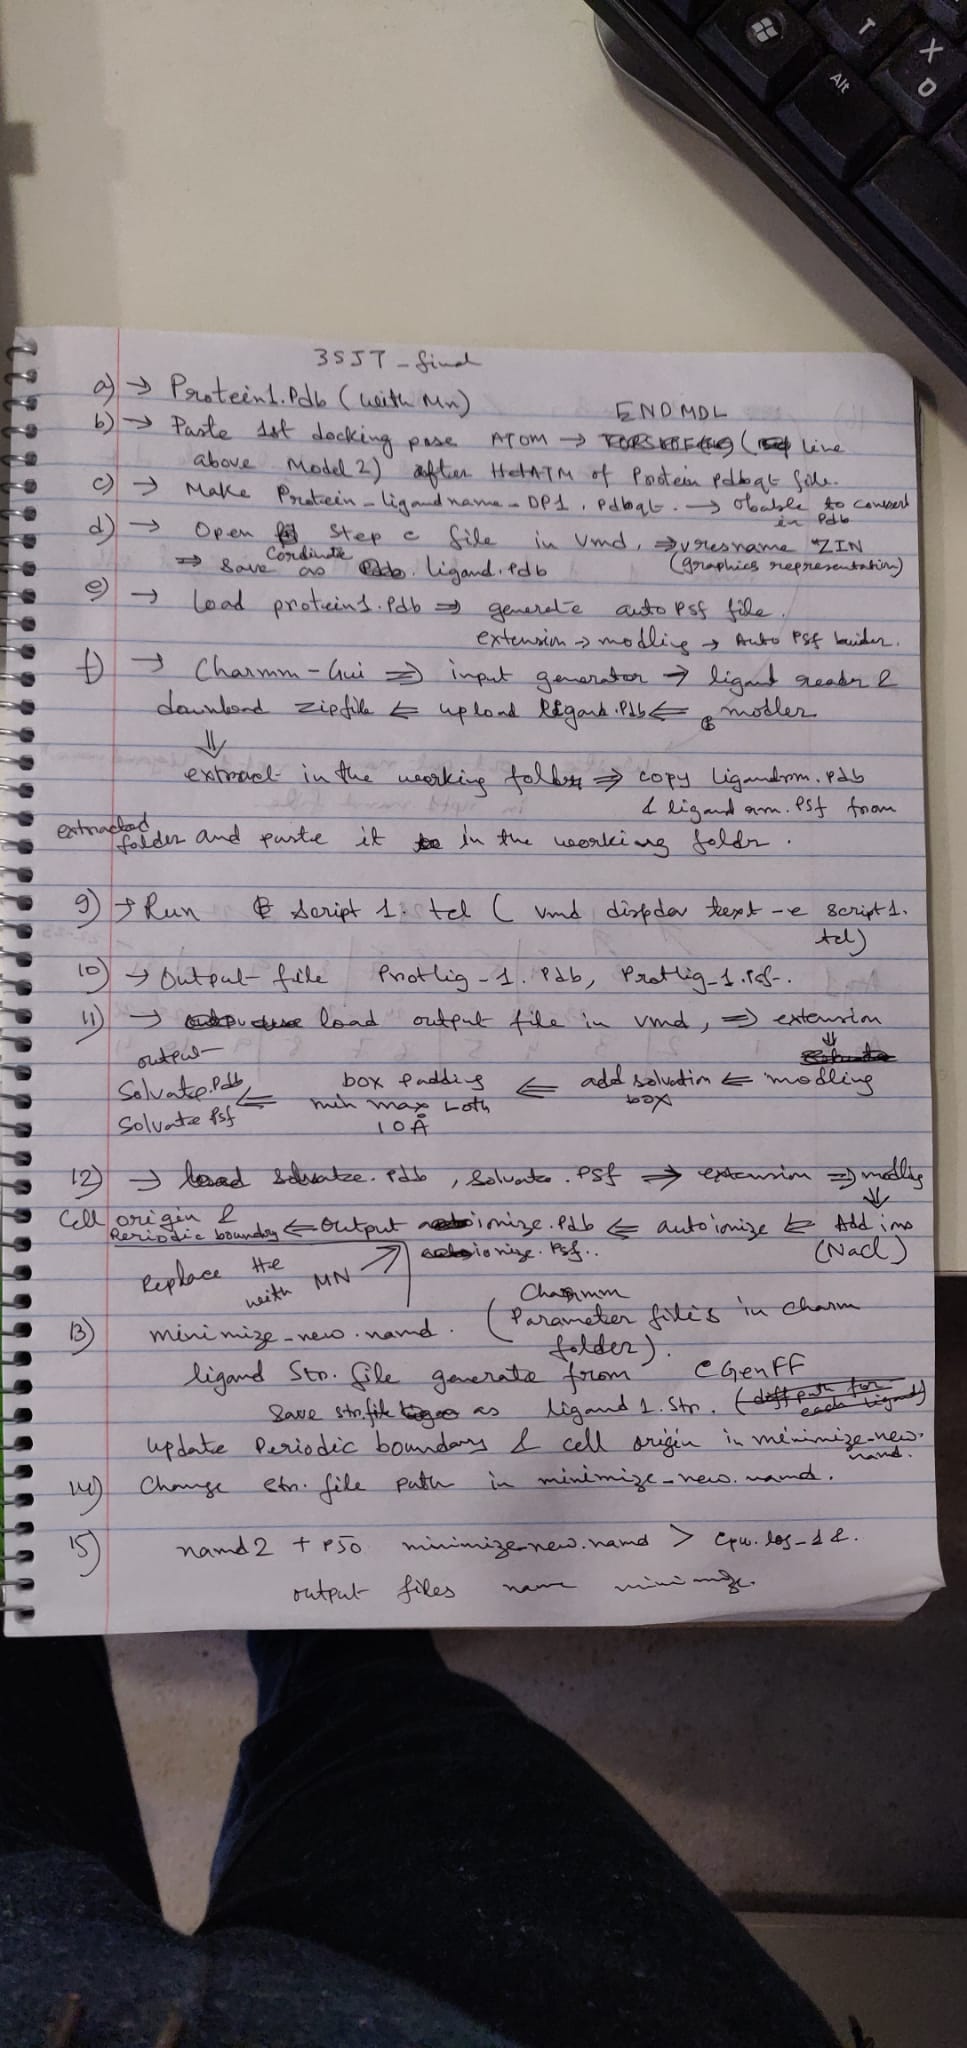 Alt
T
X
D
3SJT - final
a) → Protein1.Pdb (with Mn)
ENDMDL
b) → Paste 1st docking pose ATOM → ( line
above Model 2) after HetATM of Protein pdbqt file.
c) → Make Protein - ligandname - DP1. Pdbqt. → Obable to convert
in Pdb
d) → Open step c file in vmd, ⇒ vresname "ZIN
(graphics representation)
⇒ Save Cordinate as ligand.Pdb
e) → load protein1.Pdb ⇒ generate auto psf file.
extension → modling → Auto Psf buider.
f) → Charmm-Gui ⇒ input generator → ligand reader &
download zipfile ⇐ upload ligand.Pdb ⇐ modler
⇓
extract in the working folder ⇒ copy ligandrm.Pdb
& ligand rm.Psf from
extracted
folder and paste it in the working foldr.
9) → Run Script 1.tcl ( vmd dispdev text -e script1.
tcl)
10) → Output file Protlig_1.Pdb, Protlig_1.Psf.
11) → load output file in vmd, ⇒ extension
⇓
output
Solvate.Pdb ⇐ box padding ⇐ add solvation ⇐ modling
Solvate Psf min max both box
10Å
12) → load solvate.Pdb, Solvate.PSF ⇒ extension ⇒ modling
⇓
Cell origin &
Periodic boundary ⇐ Output ionize.Pdb ⇐ autoionize ⇐ Add ions
ionize.Psf.. (Nacl)
Replace He
with MN
13) minimize-new.namd. (Charmm
Parameter files in charm
folder).
ligand Str. file generate from CGenFF
Save str.file as ligand1.Str. (diff path for
each ligand)
update Periodic boundary & cell origin in minimize-new.
namd.
14) Change str. file path in minimize-new.namd.
15) namd2 + P50 minimize-new.namd > cpu.log_1 &.
output files name minimize.